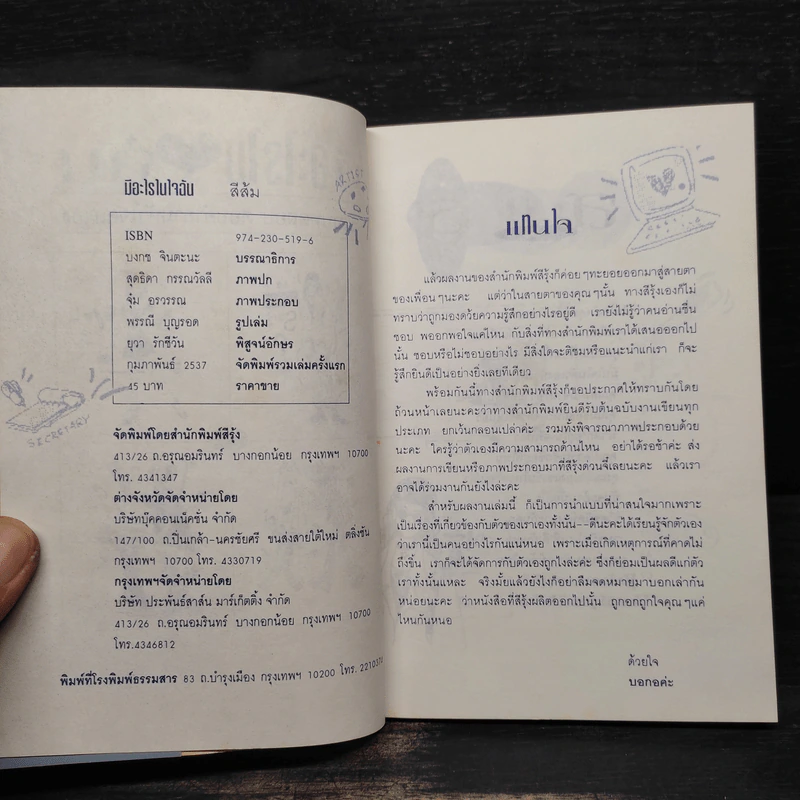 มีอะไรในใจฉัน สีส้ม
ARTIST
ISBN 974-230-519-6
บงกช จินตะนะ บรรณาธิการ
สุดธิดา กรรณวัลลี ภาพปก
จุ๋ม อรวรรณ ภาพประกอบ
พรรณี บุญรอด รูปเล่ม
ยุวา รักชีวัน พิสูจน์อักษร
กุมภาพันธ์ 2537 จัดพิมพ์รวมเล่มครั้งแรก
45 บาท ราคาขาย
SECRETARY
จัดพิมพ์โดยสำนักพิมพ์สีรุ้ง
413/26 ถ.อรุณอมรินทร์ บางกอกน้อย กรุงเทพฯ 10700
โทร. 4341347
ต่างจังหวัดจัดจำหน่ายโดย
บริษัทบุ๊คคอนเน็คชั่น จำกัด
147/100 ถ.ปิ่นเกล้า-นครชัยศรี ขนส่งสายใต้ใหม่ ตลิ่งชัน
กรุงเทพฯ 10700 โทร. 4330719
กรุงเทพฯจัดจำหน่ายโดย
บริษัท ประพันธ์สาส์น มาร์เก็ตติ้ง จำกัด
413/26 ถ.อรุณอมรินทร์ บางกอกน้อย กรุงเทพฯ 10700
โทร.4346812
พิมพ์ที่โรงพิมพ์ธรรมสาร 83 ถ.บำรุงเมือง กรุงเทพฯ 10200 โทร.
แทนใจ
แล้วผลงานของสำนักพิมพ์สีรุ้งก็ค่อยๆทะยอยออกมาสู่สายตา
ของเพื่อนๆนะคะ แต่ว่าในสายตาของคุณๆนั้น ทางสีรุ้งเองก็ไม่
ทราบว่าถูกมองด้วยความรู้สึกอย่างไรอยู่ดี เรายังไม่รู้ว่าคนอ่านชื่น
ชอบ พออกพอใจแค่ไหน กับสิ่งที่ทางสำนักพิมพ์เราได้เสนอออกไป
นั้น ชอบหรือไม่ชอบอย่างไร มีสิ่งใดจะติชมหรือแนะนำแก่เรา ก็จะ
รู้สึกยินดีเป็นอย่างยิ่งเลยทีเดียว
พร้อมกันนี้ทางสำนักพิมพ์สีรุ้งก็ขอประกาศให้ทราบกันโดย
ถ้วนหน้าเลยนะคะว่าทางสำนักพิมพ์ยินดีรับต้นฉบับงานเขียนทุก
ประเภท ยกเว้นกลอนเปล่าค่ะ รวมทั้งพิจารณาภาพประกอบด้วย
นะคะ ใครรู้ว่าตัวเองมีความสามารถด้านไหน อย่าได้รอช้าค่ะ ส่ง
ผลงานการเขียนหรือภาพประกอบมาที่สีรุ้งด่วนจี๋เลยนะคะ แล้วเรา
อาจได้ร่วมงานกันยังไงล่ะคะ
สำหรับผลงานเล่มนี้ ก็เป็นการนำแบบที่น่าสนใจมากเพราะ
เป็นเรื่องที่เกี่ยวข้องกับตัวของเราเองทั้งนั้น--ดีนะคะได้เรียนรู้จักตัวเอง
ว่าเรานี้เป็นคนอย่างไรกันแน่หนอ เพราะเมื่อเกิดเหตุการณ์ที่คาดไม่
ถึงขึ้น เราก็จะได้จัดการกับตัวเองถูกไงล่ะค่ะ ซึ่งก็ย่อมเป็นผลดีแก่ตัว
เราทั้งนั้นแหละ จริงมั้ยแล้วยังไงก็อย่าลืมจดหมายมาบอกเล่ากัน
หน่อยนะคะ ว่าหนังสือที่สีรุ้งผลิตออกไปนั้น ถูกอกถูกใจคุณๆแค่
ไหนกันหนอ
ด้วยใจ
บอกอค่ะ